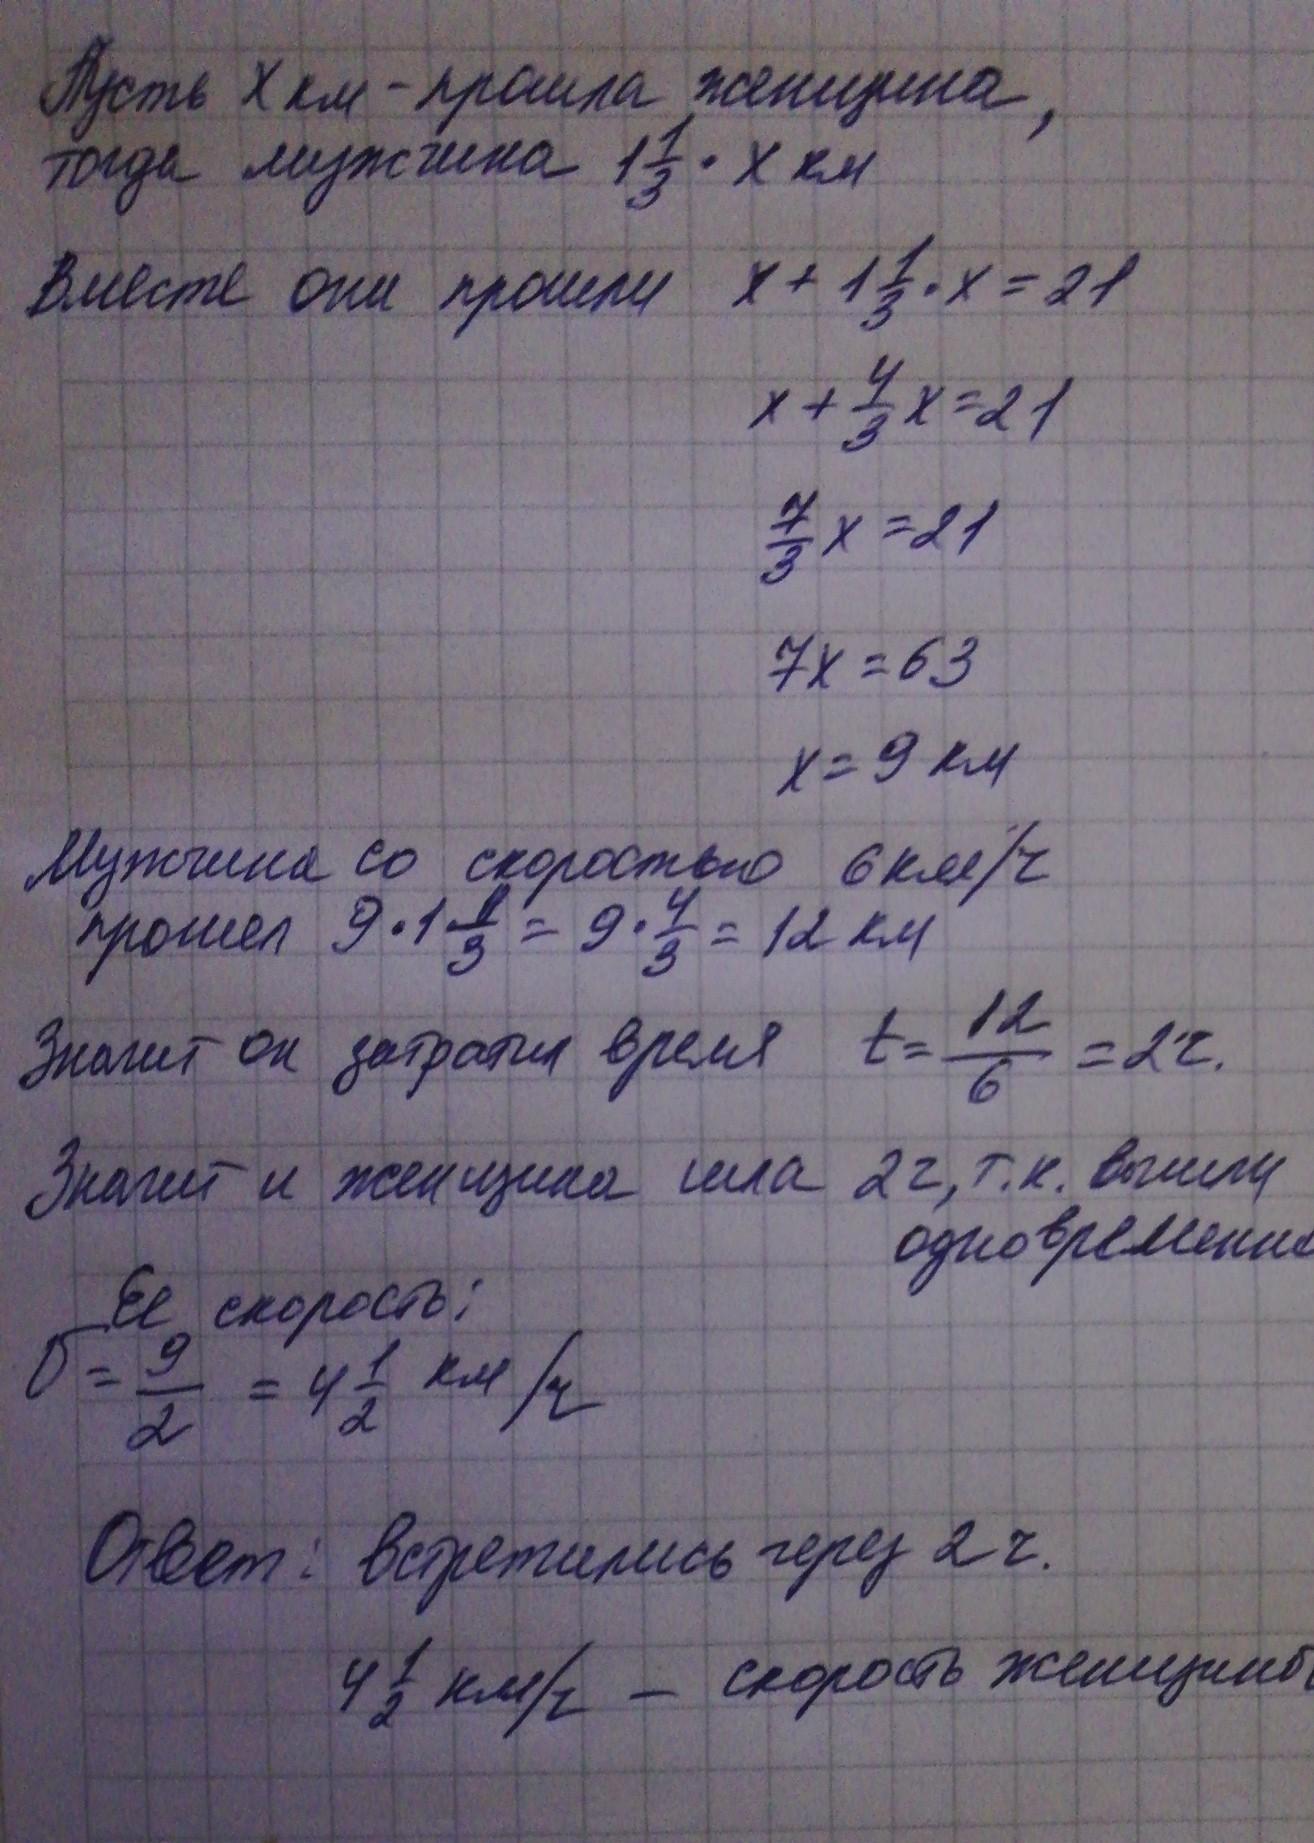 Пусть x км - прошла женщина,
тогда мужчина 1 1/3 · x км
Вместе они прошли x + 1 1/3 · x = 21
x + 4/3 x = 21
7/3 x = 21
7x = 63
x = 9 км
Мужчина со скоростью 6 км/ч
прошел 9 · 1 1/3 = 9 · 4/3 = 12 км
Значит он затратил время t = 12/6 = 2 ч.
Значит и женщина шла 2 ч, т.к. вышли
одновременно
Ее скорость:
v = 9/2 = 4 1/2 км/ч
Ответ: встретились через 2 ч.
4 1/2 км/ч - скорость женщины